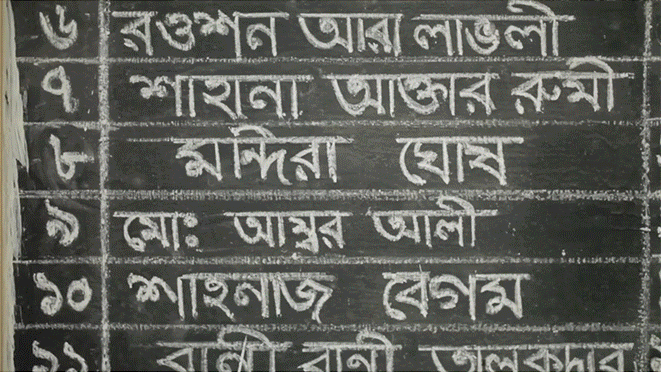 ৬ রওশন আরা লাভলী
৭ শাহানা আক্তার রুমী
৮ মন্দিরা ঘোষ
৯ মোঃ আম্বর আলী
১০ শাহনাজ বেগম
১১ বানী রানী তালুকদার